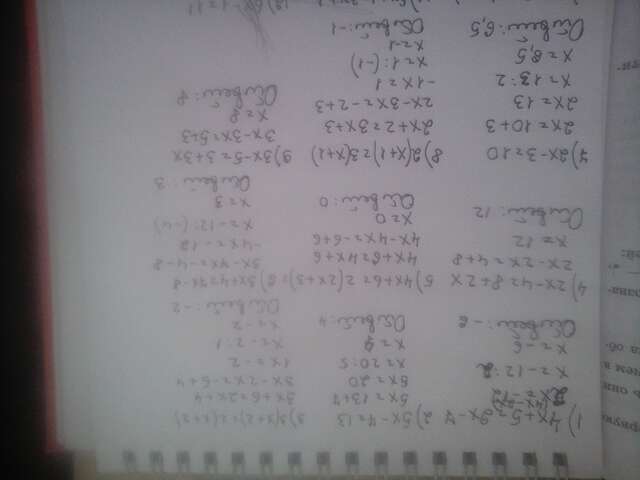 1) 4x+5=2x-7
2x=-12
x=-12:2
x=-6
Ответ: -6
2) 5x-7=13
5x=13+7
5x=20
x=20:5
x=4
Ответ: 4
3) 3(x+2)=2(x+2)
3x+6=2x+4
3x-2x=-6+4
1x=-2
x=-2:1
x=-2
Ответ: -2
4) 2x-4=8+2x
2x-2x=4+8
x=12
Ответ: 12
5) 4x+6=2(2x+3)
4x+6=4x+6
4x-4x=-6+6
x=0
Ответ: 0
6) 3x+4=7x-8
3x-7x=-4-8
-4x=-12
x=-12:(-4)
x=3
Ответ: 3
7) 2x-3=10
2x=10+3
2x=13
x=13:2
x=8,5
Ответ: 6,5
8) 2(x+1)=3(x+1)
2x+2=3x+3
2x-3x=-2+3
-1x=1
x=1:(-1)
x=-1
Ответ: -1
9) 3x-5=3+3x
3x-3x=5+3
x=8
Ответ: 8
6x-1=11